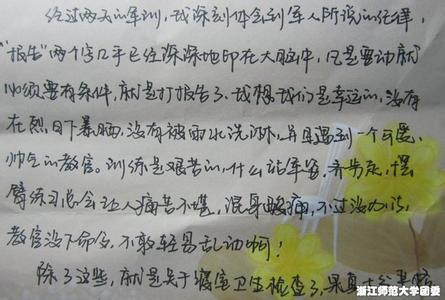 经过两天的军训，我深刻体会到军人所说的纪律，
“报告”两个字几乎已经深深地印在大脑中，凡是要动就
必须要有条件，就是打报告了。我想我们是幸运的，没有
在烈日下暴晒，没有被雨水洗淋，并且遇到一个可爱、
帅气的教官。训练是艰苦的，什么站军姿、齐步走，摆
臂练习总会让人痛苦不堪，混身酸痛，不过没办法，
教官没下命令，不敢轻易乱动啊！
除了这些，就是关于寝室卫生检查了，果真十分严格
浙江师范大学团委